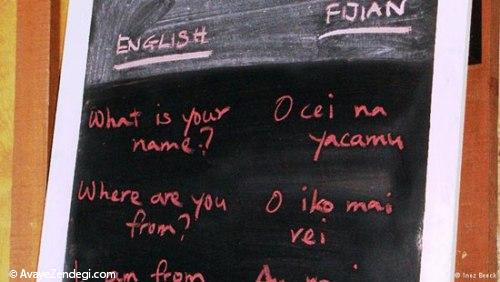 ENGLISH
FIJIAN
What is your
name?
O cei na
yacamu
Where are you
from?
O iko mai
vei
I am from
© AvayeZendegi.com
© Inez Beeck